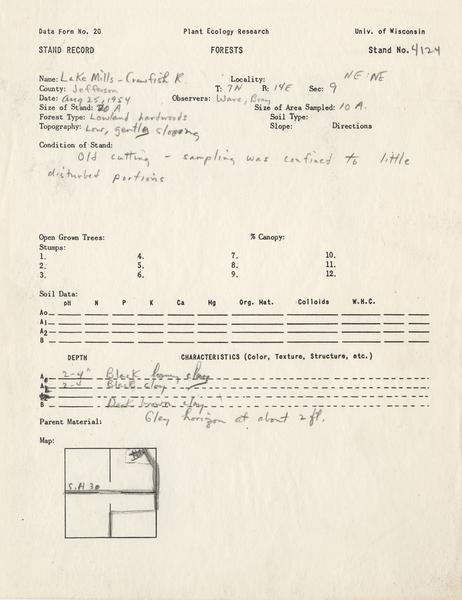 Data Form No. 20 Plant Ecology Research Univ. of Wisconsin
STAND RECORD FORESTS Stand No. 4124
Name: Lake Mills - Crawfish R. Locality: NE:NE
County: Jefferson T: 7N R: 14E Sec: 9
Date: Aug 25, 1954 Observers: Ware, Bray
Size of Stand: 20 A Size of Area Sampled: 10 A.
Forest Type: Lowland hardwoods Soil Type:
Topography: Low, gently sloping Slope: Directions
Condition of Stand:
Old cutting - sampling was confined to little
disturbed portions
Open Grown Trees: % Canopy:
Stumps:
1. 4. 7. 10.
2. 5. 8. 11.
3. 6. 9. 12.
Soil Data:
pH N P K Ca Mg Org. Mat. Colloids W.H.C.
Ao
A1
A2
B
DEPTH CHARACTERISTICS (Color, Texture, Structure, etc.)
A 2-4" Black loamy clay
A 2-4 Black clay
B brown clay
Parent Material: Gley horizon at about 2 ft.
Map:
S.H 30